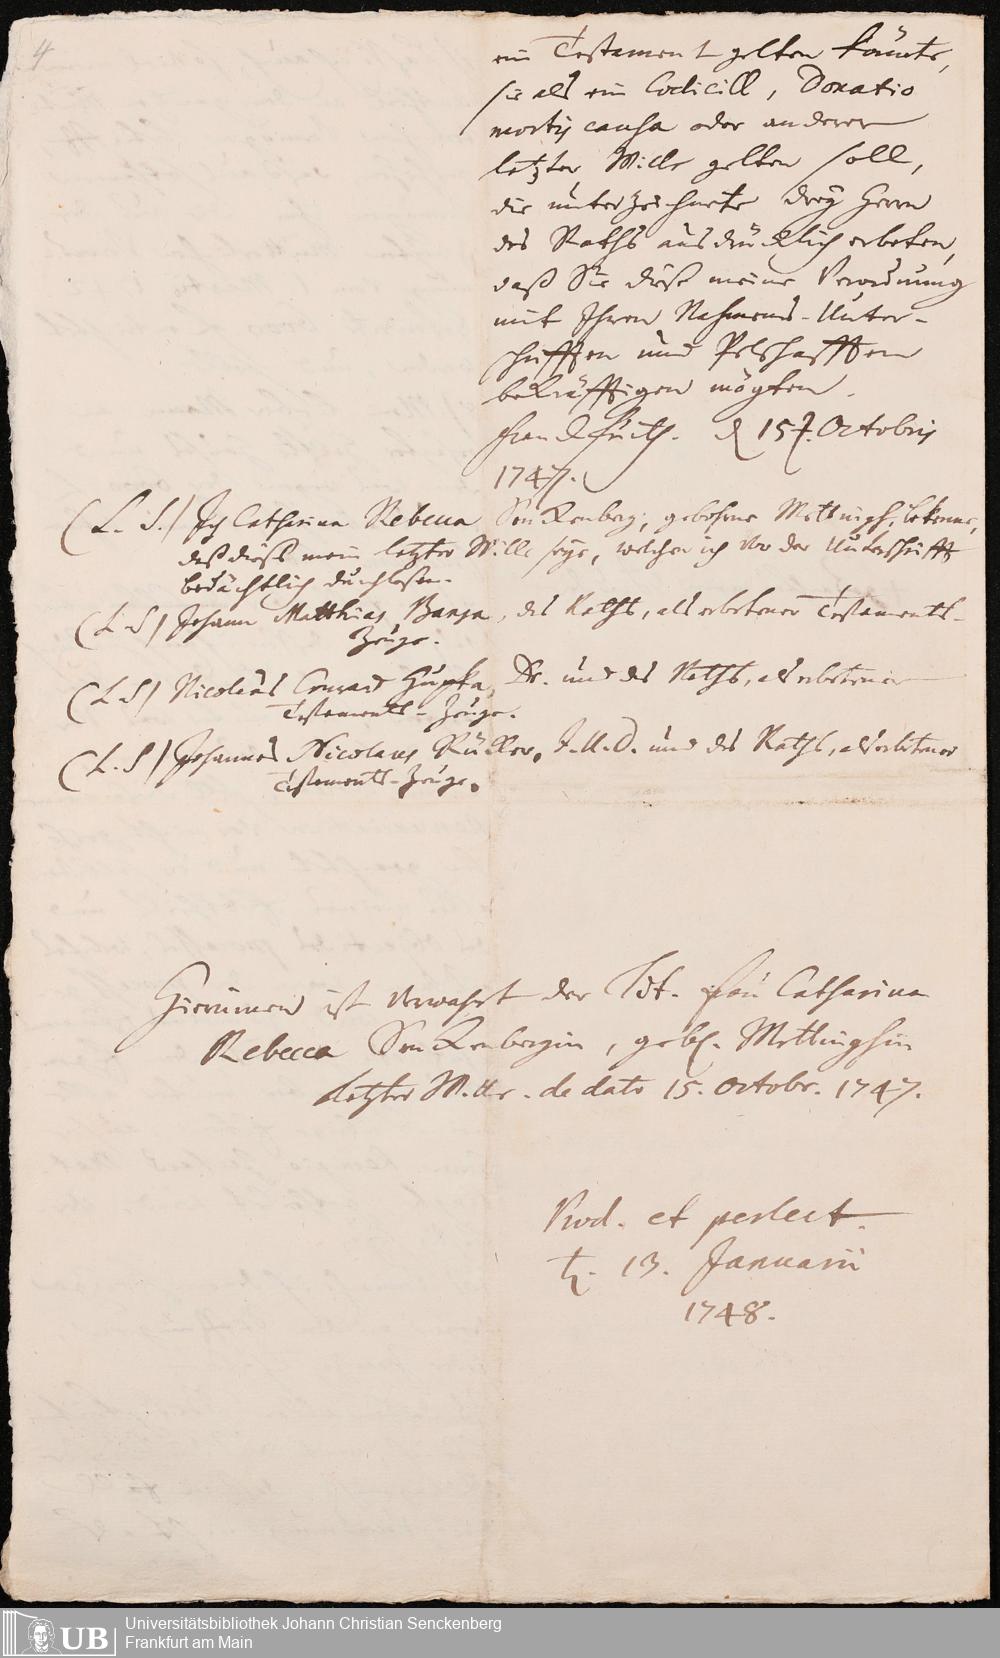 4
ein Testament gelten könnte,
sie als ein Codicill, Donatio
mortis causa oder anderer
letzter Wille gelten soll,
die unterzeichnete drey Herrn
des Raths ausdrücklich erbeten,
daß Sie diese meine Verordnung
mit Ihren Nahmens-Unter-
schrifften und Pettschafften
bekräfftigen mögten.
Franckfurth. d 15t. Octobris
1747.
(L. S.) Ich Catharina Rebecca Senckenberg, gebohrne Mettingh, bekenne,
daß dieses mein letzter Wille seye, welchen ich vor der Unterschrifft
bedächtlich durchlesen.
(L. S) Johann Matthias Bansa, des Raths, als erbetener Testaments-
Zeuge.
(L. S) Nicolaus Conrad Hupka, Dr. und des Raths, als erbetener
Testaments-Zeuge.
(L. S) Johannes Nicolaus Rücker, J.U.D. und des Raths, als erbetener
Testaments-Zeuge.
Hierinnen ist verwahrt der Tit. Frau Catharina
Rebecca Senckenbergin, geb. Mettinghin
letzter Wille. de dato 15. Octobr. 1747.
Prod. et perlect.
13. Januarii
1748.
UB
Universitätsbibliothek Johann Christian Senckenberg
Frankfurt am Main